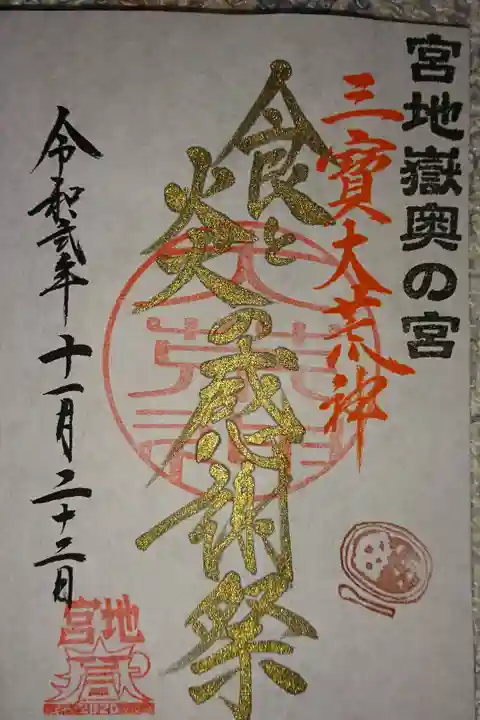 宮地嶽奥の宮
三寳大荒神
食と炎の感謝祭
令和弐年十一月二十二日
宮地嶽
2020